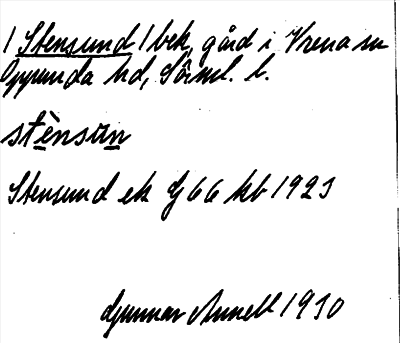 1 Stensund 1 bek, gård i Vrena sn
Oppunda hd, Sörml. l.
stènsun
Stensund ek G 66 kb 1923
Gunnar Annell 1930